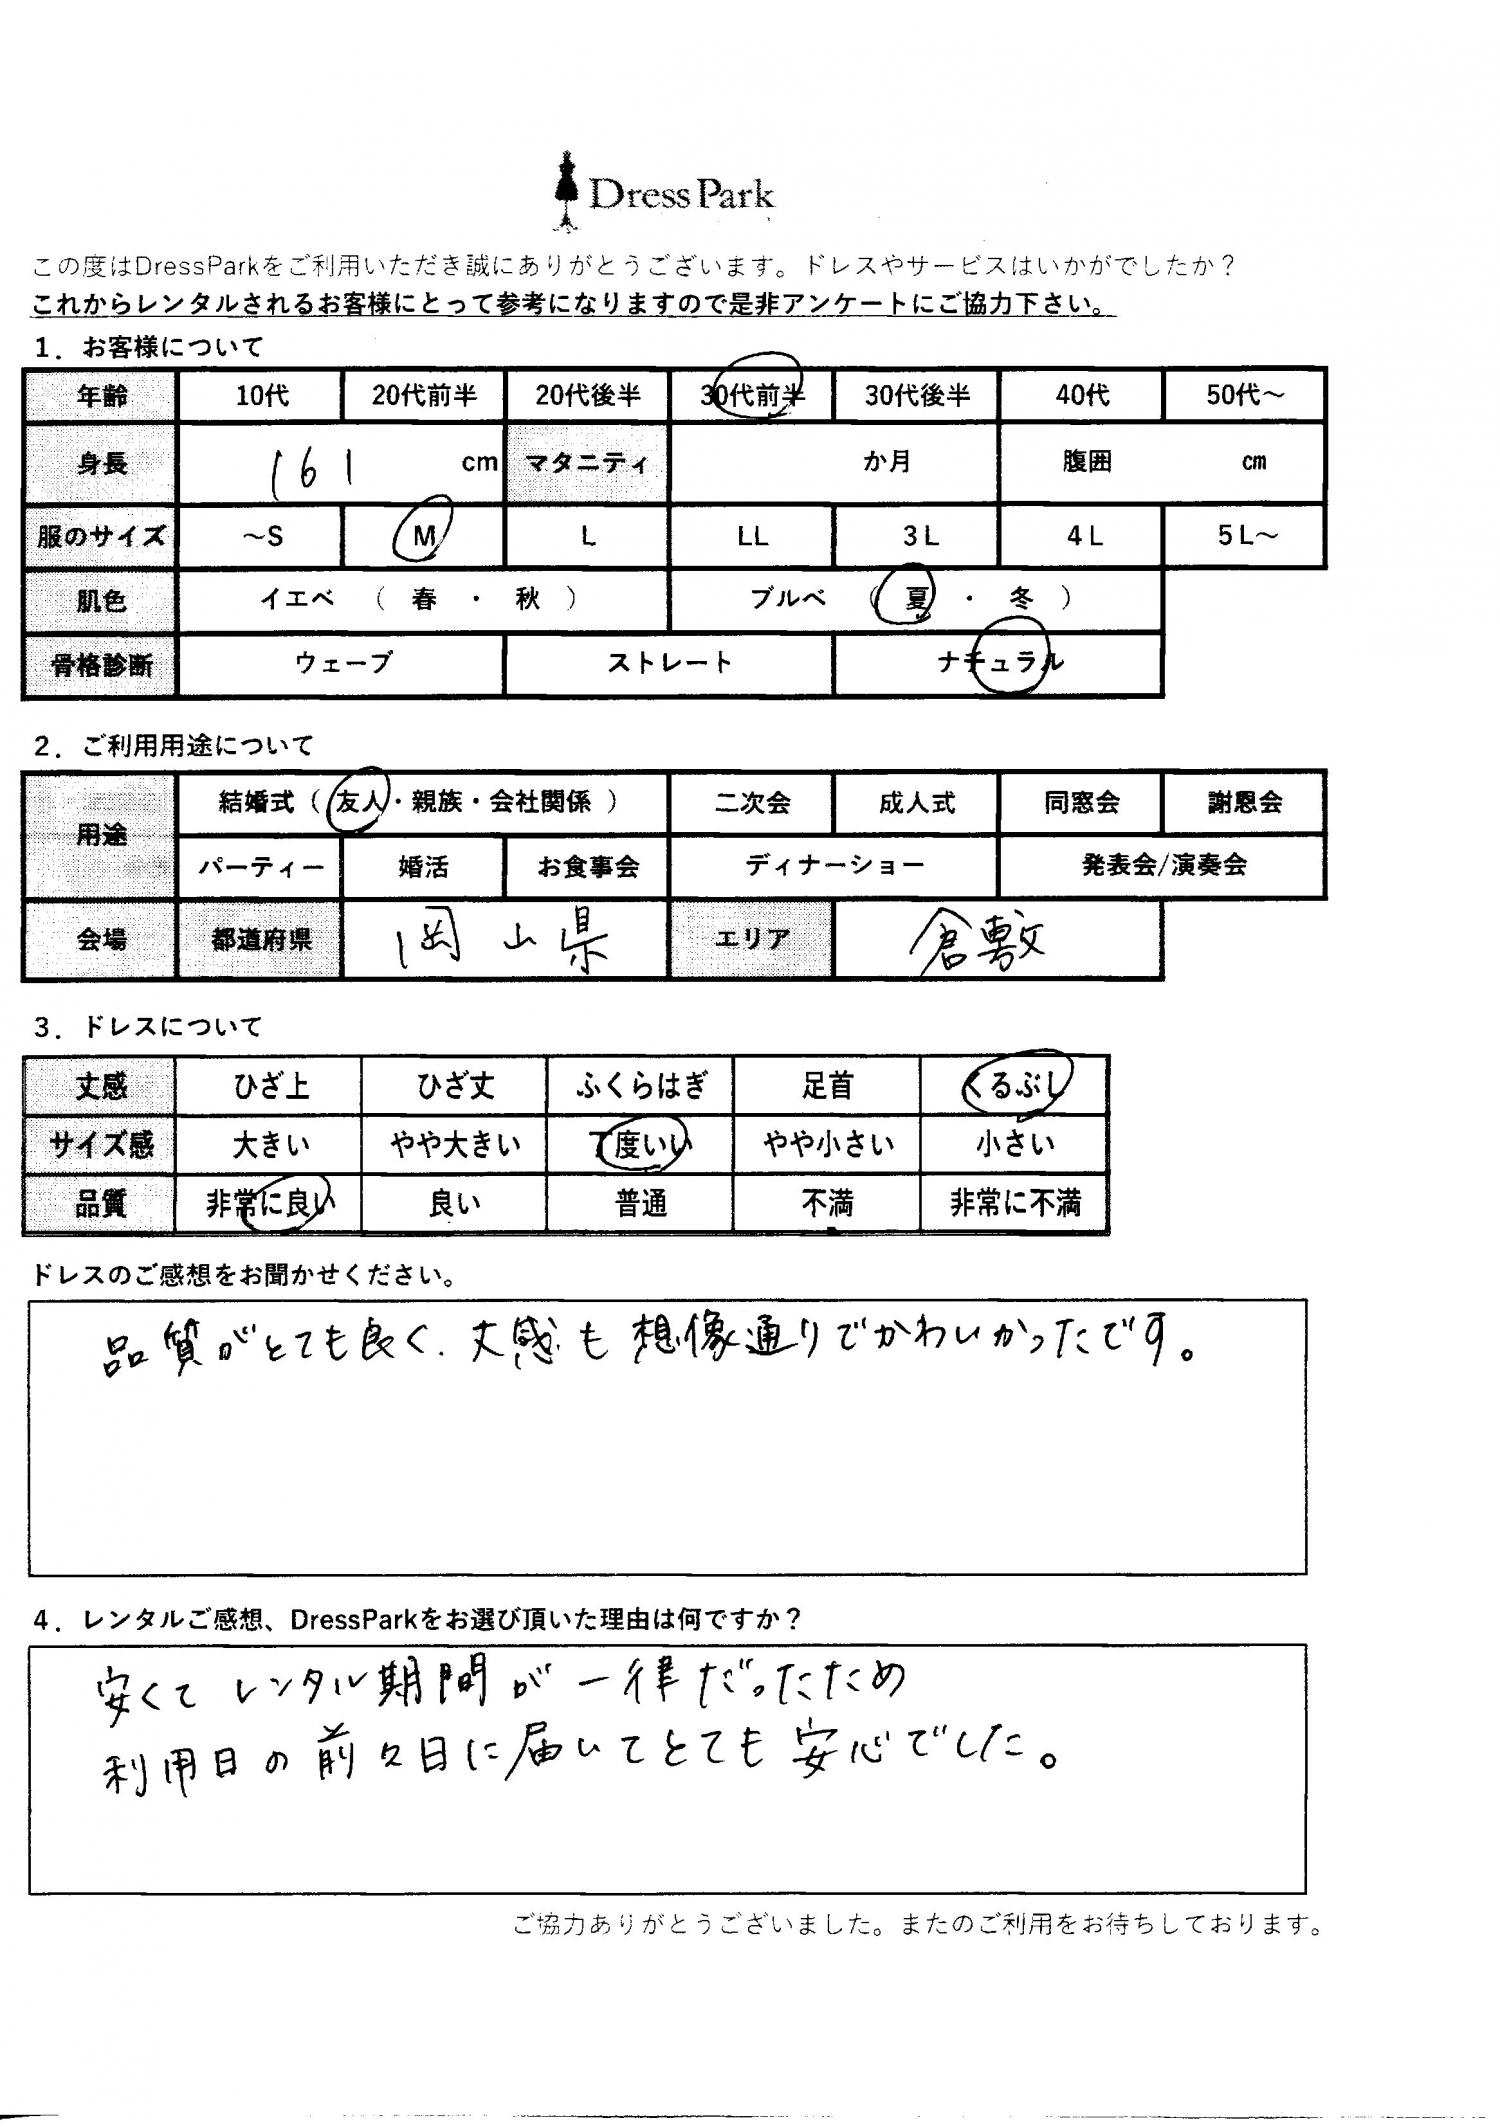 Dress Park
この度はDressParkをご利用いただき誠にありがとうございます。ドレスやサービスはいかがでしたか？
これからレンタルされるお客様にとって参考になりますので是非アンケートにご協力下さい。
1．お客様について
年齢 10代 20代前半 20代後半 30代前半 30代後半 40代 50代～
身長 161 cm マタニティ か月 腹囲 cm
服のサイズ ～S M L LL 3L 4L 5L～
肌色 イエベ （ 春 ・ 秋 ） ブルベ （ 夏 ・ 冬 ）
骨格診断 ウェーブ ストレート ナチュラル
2．ご利用用途について
用途 結婚式（ 友人・親族・会社関係 ） 二次会 成人式 同窓会 謝恩会
パーティー 婚活 お食事会 ディナーショー 発表会/演奏会
会場 都道府県 岡山県 エリア 倉敷
3．ドレスについて
丈感 ひざ上 ひざ丈 ふくらはぎ 足首 くるぶし
サイズ感 大きい やや大きい 丁度いい やや小さい 小さい
品質 非常に良い 良い 普通 不満 非常に不満
ドレスのご感想をお聞かせください。
品質がとても良く、丈感も想像通りでかわいかったです。
4．レンタルご感想、DressParkをお選び頂いた理由は何ですか？
安くてレンタル期間が一律だったため
利用日の前々日に届いてとても安心でした。
ご協力ありがとうございました。またのご利用をお待ちしております。